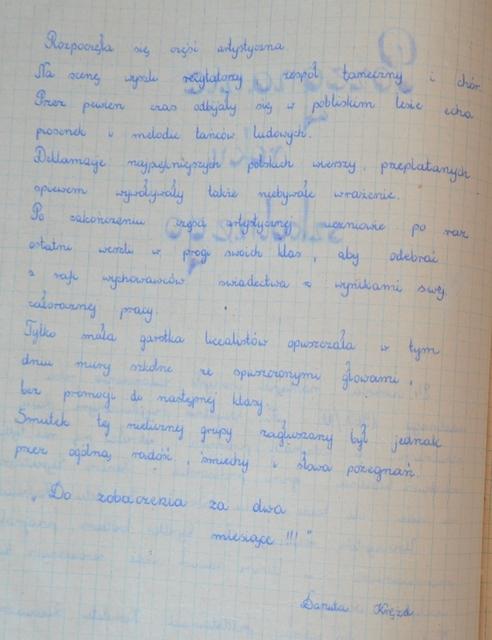 Rozpoczęła się część artystyczna
Na scenę wyszli recytatorzy zespół taneczny i chór.
Przez pewien czas odbijały się w pobliskim lesie echa
piosenek i melodie tańców ludowych.
Deklamacje najpiękniejszych polskich wierszy, przeplatanych
śpiewem wywoływały także niebywałe wrażenie.
Po zakończeniu części artystycznej uczniowie po raz
ostatni weszli w progi swoich klas, aby odebrać
z rąk wychowawców świadectwa z wynikami swej
całorocznej pracy.
Tylko mała garstka licealistów opuszczała w tym
dniu mury szkolne ze spuszczonymi głowami,
bez promocji do następnej klasy.
Smutek tej nielicznej grupy zagłuszany był jednak
przez ogólną radość, śmiechy i słowa pożegnań.
„Do zobaczenia za dwa
miesiące !!!"
Danuta